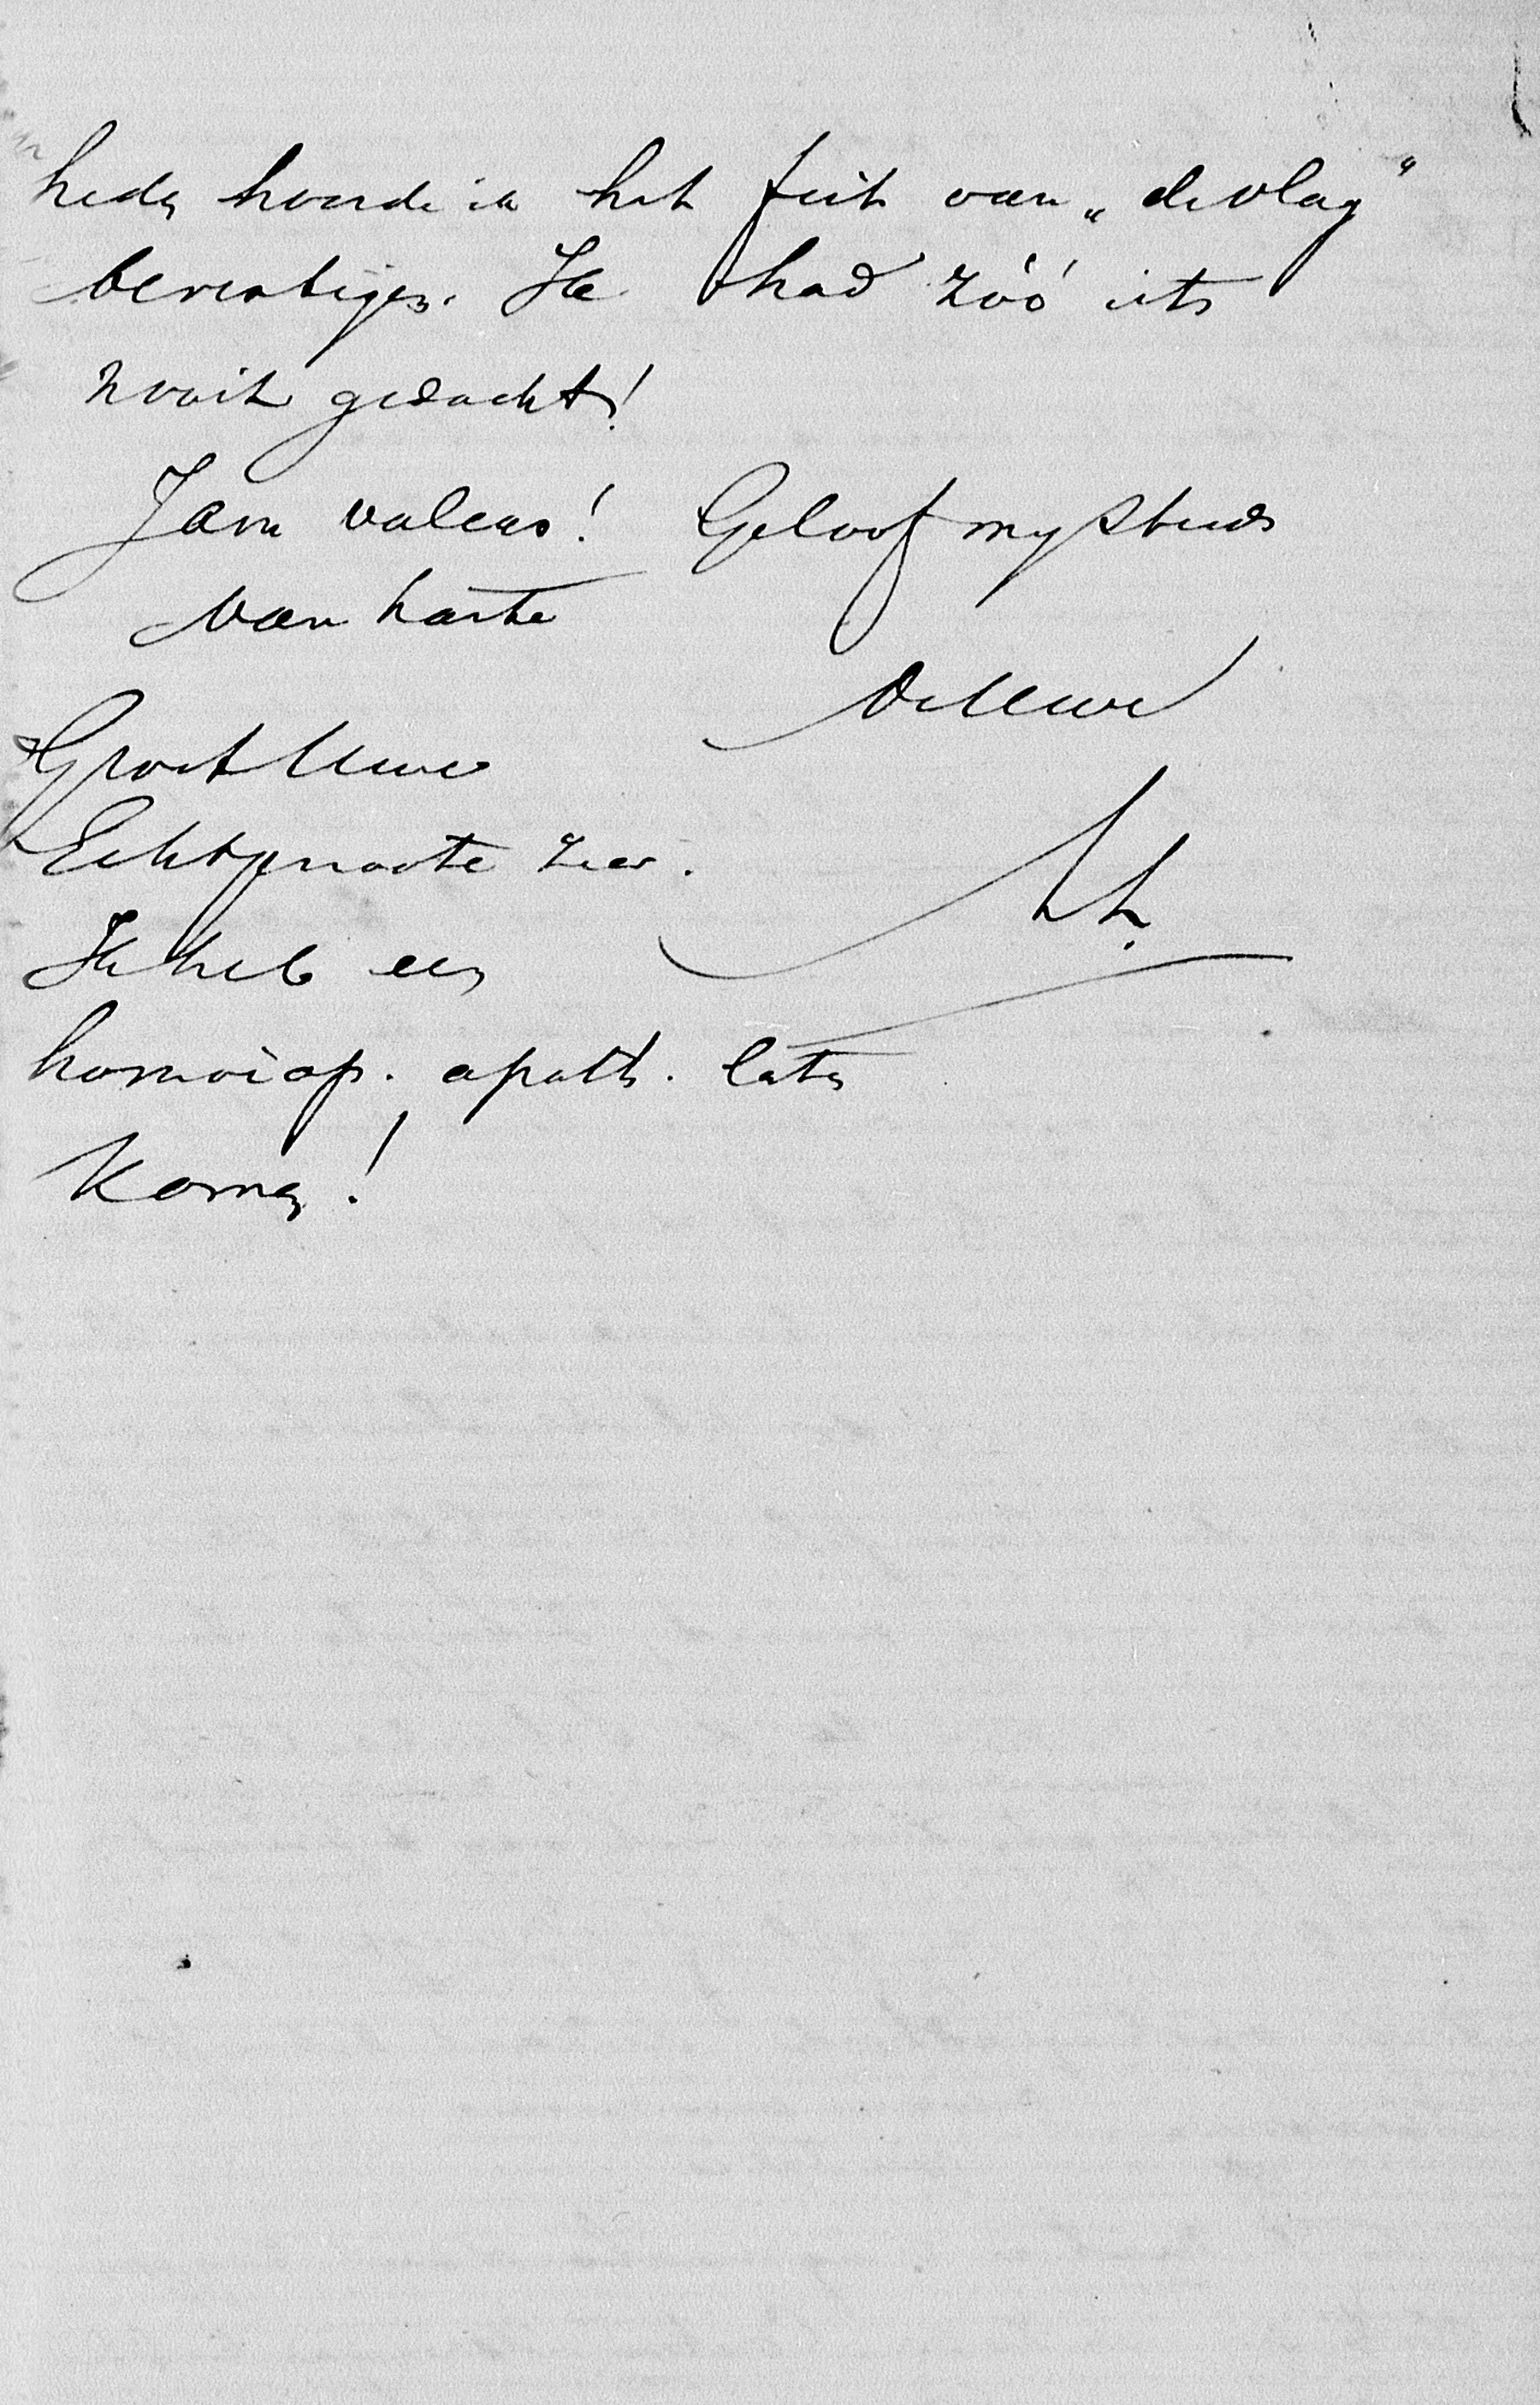 heden hoorde ik het feit van „de vlag"
bevestigen. Ik had zóó iets
nooit gedacht!
Jam valeas! Geloof mij steeds
van harte
de Uwe
Groet Uwe
Echtgenoote zeer.
Ik heb een
homoiop. apoth. laten
komen!